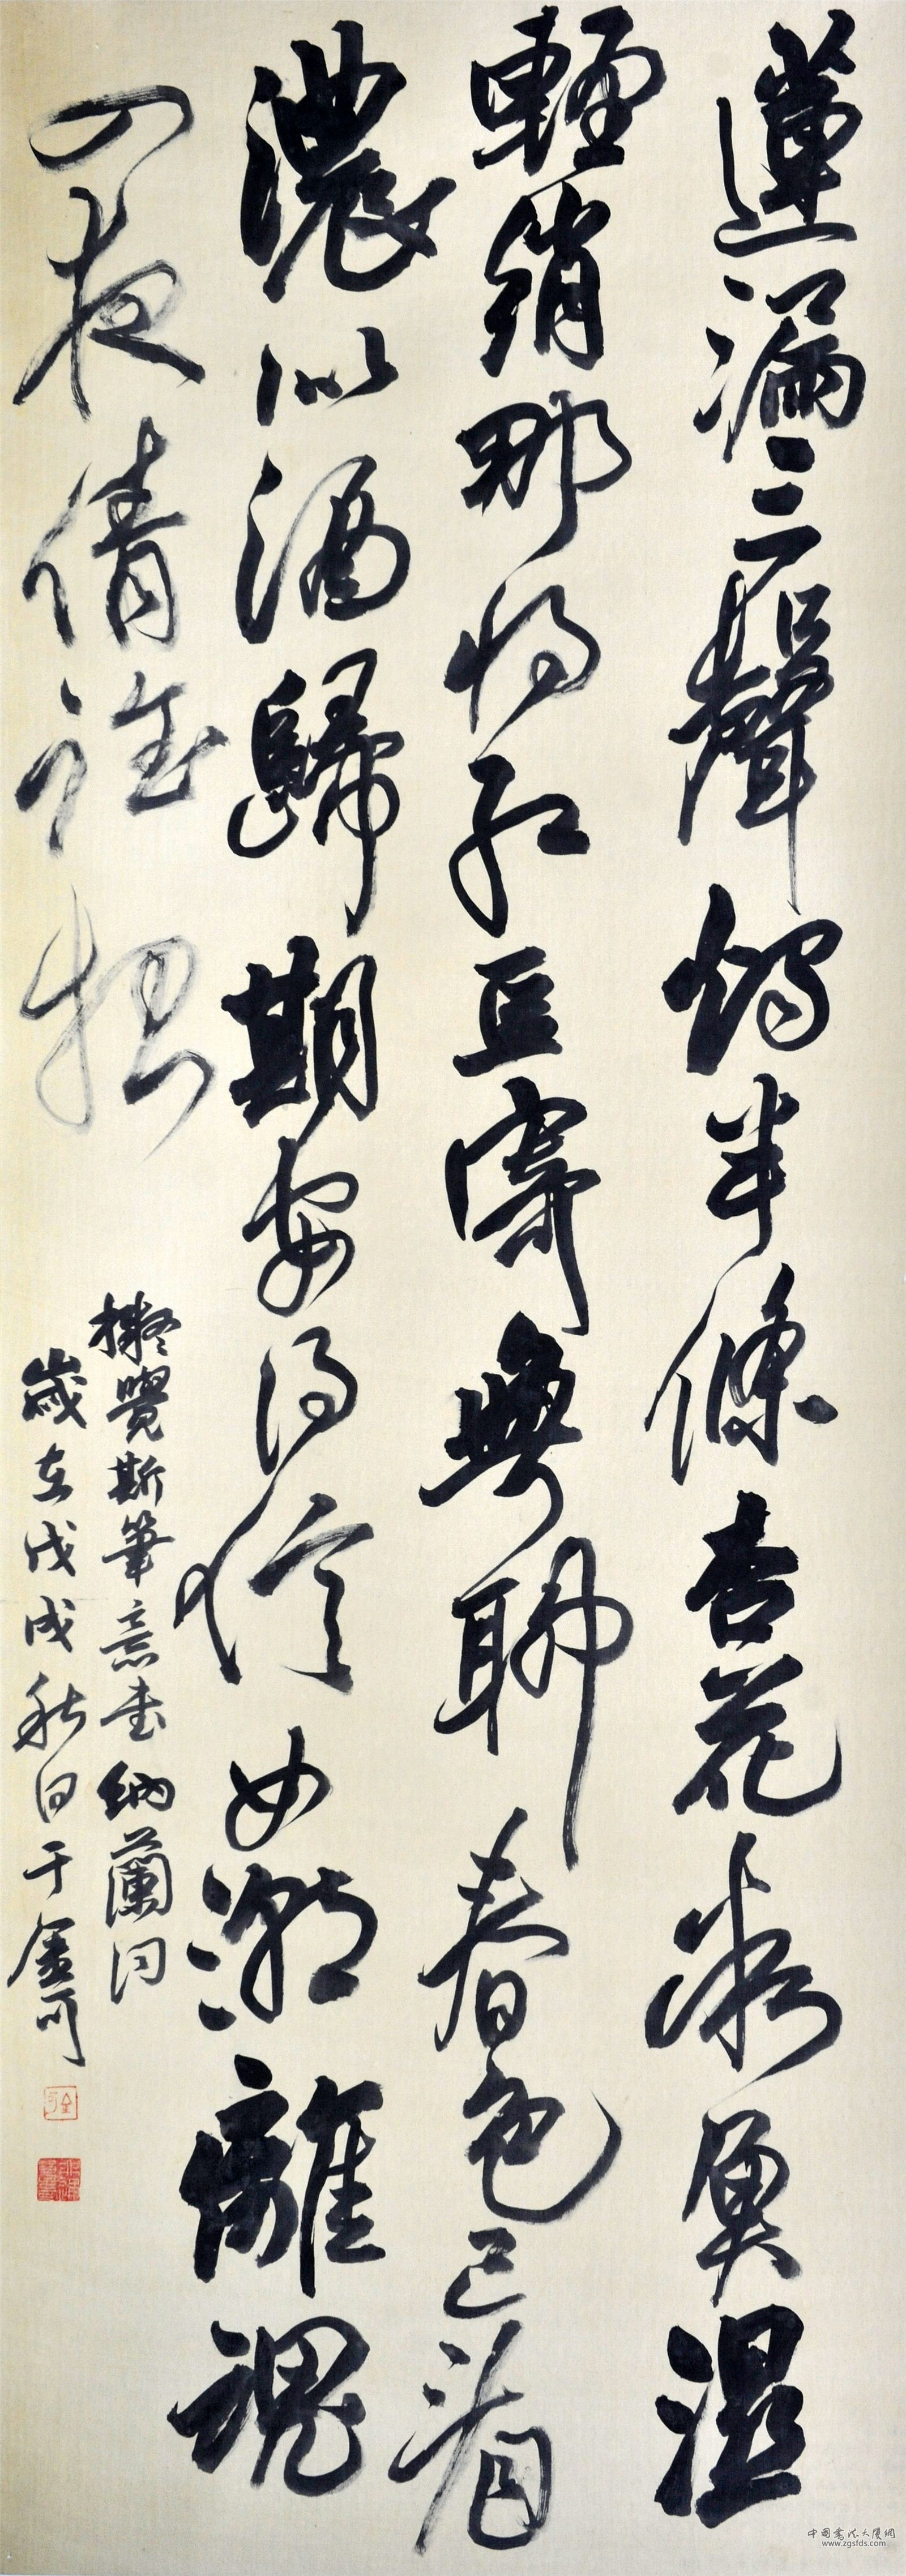 蓮漏三聲燭半條杏花濕
輕綃那將紅豆寄無聊春色已看
濃似酒歸期安得信如潮離魂
入夜倩誰招
擬覺斯筆意書納蘭詞
歲在戊戌秋日于金可
中國書法大厦網
www.zgsfds.com